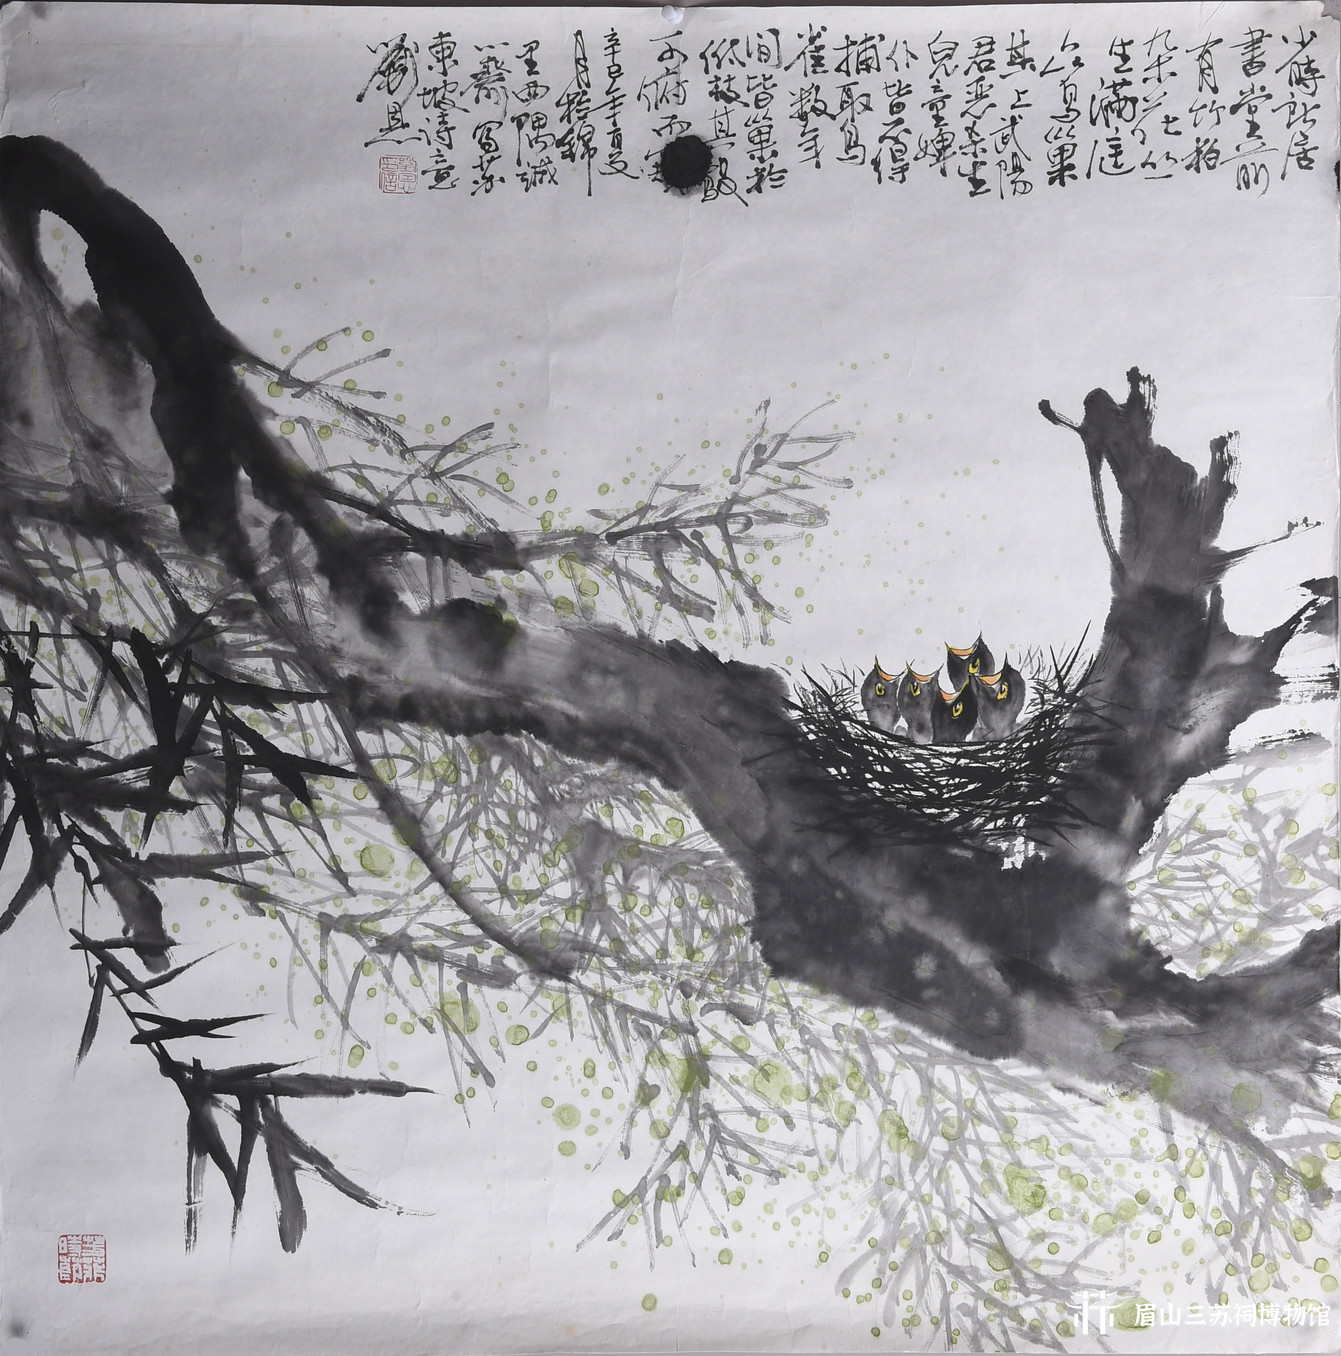 少時所居
書堂前
有竹柏
杂花丛
生滿庭
众鳥巢
其上武陽
君惡杀生
兒童婢
仆皆不得
捕取鳥
雀數年
間皆巢於
低枝其鷇
可俯而窥
辛巳年夏
月於錦
里西隅誠
齋寫蘇
東坡詩意
劉
眉山三苏祠博物馆